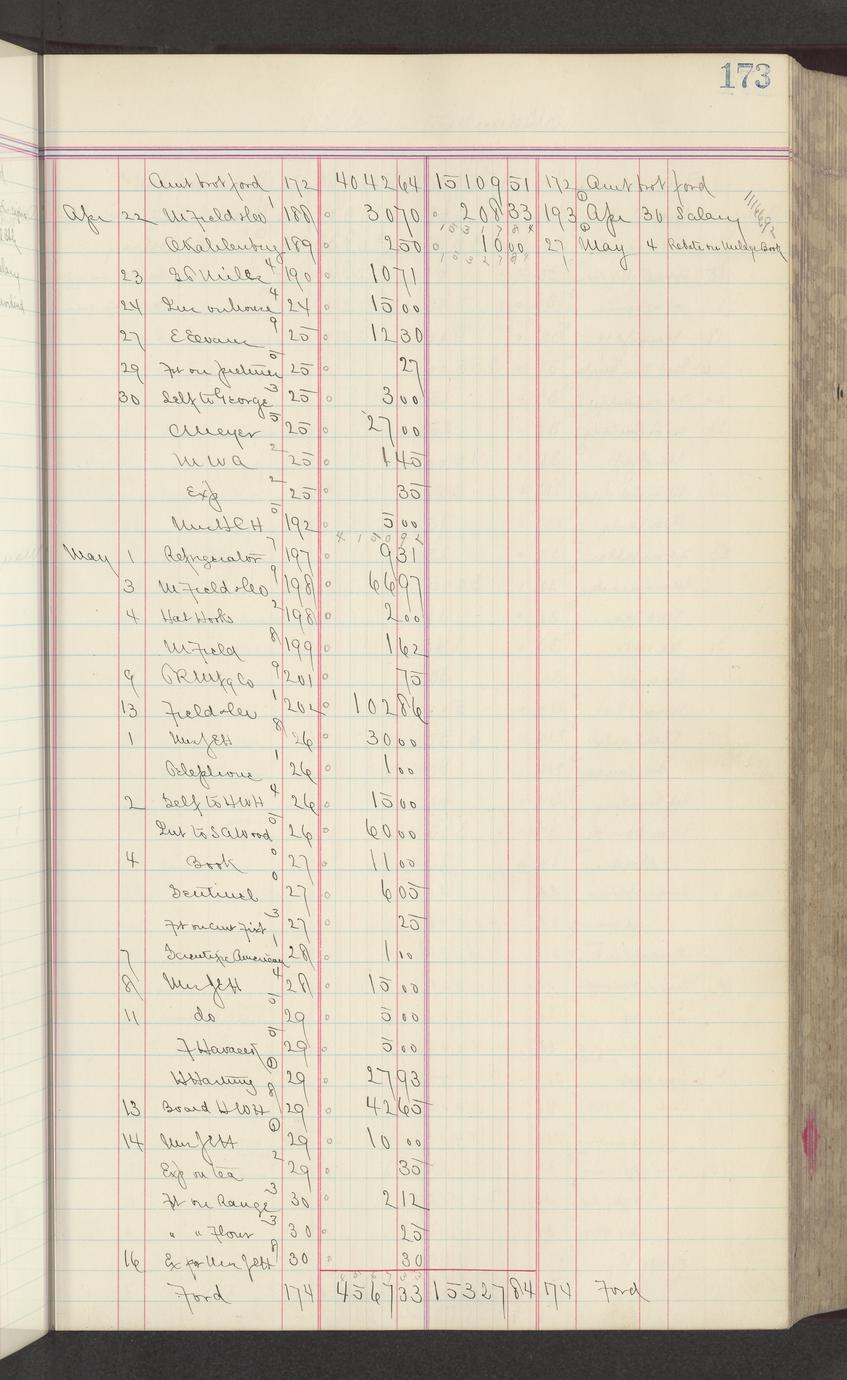 173
Amt brot ford 172 4042 64 15109 51 172 Amt brot ford
Apr 22 M Field & Co 1 188 30 70 208 33 193 1 Apr 30 Salary
189 2 50 10 00 27 1 May 4 Rebate on Mileage Book
23 4 190 10 71
24 Ins on house 4 24 15 00
27 E Evans 9 25 12 30
29 Frt on pictures 5 25 27
30 Self to George 3 25 3 00
C Meyer 5 25 27 00
M W A 2 25 1 45
Exp 2 25 35
Mrs J E H 5 192 5 00
4 1 5 0 9 2
May 1 Refrigerator 7 197 9 31
3 M Field & Co 9 198 66 97
4 Hat Hooks 2 198 2 00
M Field 8 199 1 62
9 P R Mfg Co 9 201 75
13 Field & Co 1 202 102 86
1 Mrs J E H 8 26 30 00
Telephone 1 26 1 00
2 Self to H W H 4 26 15 00
Int to S A Wood 5 26 60 00
4 Book 0 27 11 00
Sentinel 0 27 6 05
Frt on 3 27 25
7 Scientific American 1 28 1 00
8 Mrs J E H 4 28 15 00
11 do 5 29 5 00
5 29 5 00
H Hartung 1 29 27 93
13 Board H W H 8 29 42 65
14 Mrs J E H 1 29 10 00
Exp on tea 2 29 35
Frt on Range 3 30 2 12
" " Flour 3 30 25
16 Exp Mrs J E H 8 30 30
Ford 174 4567 33 15327 84 174 Ford